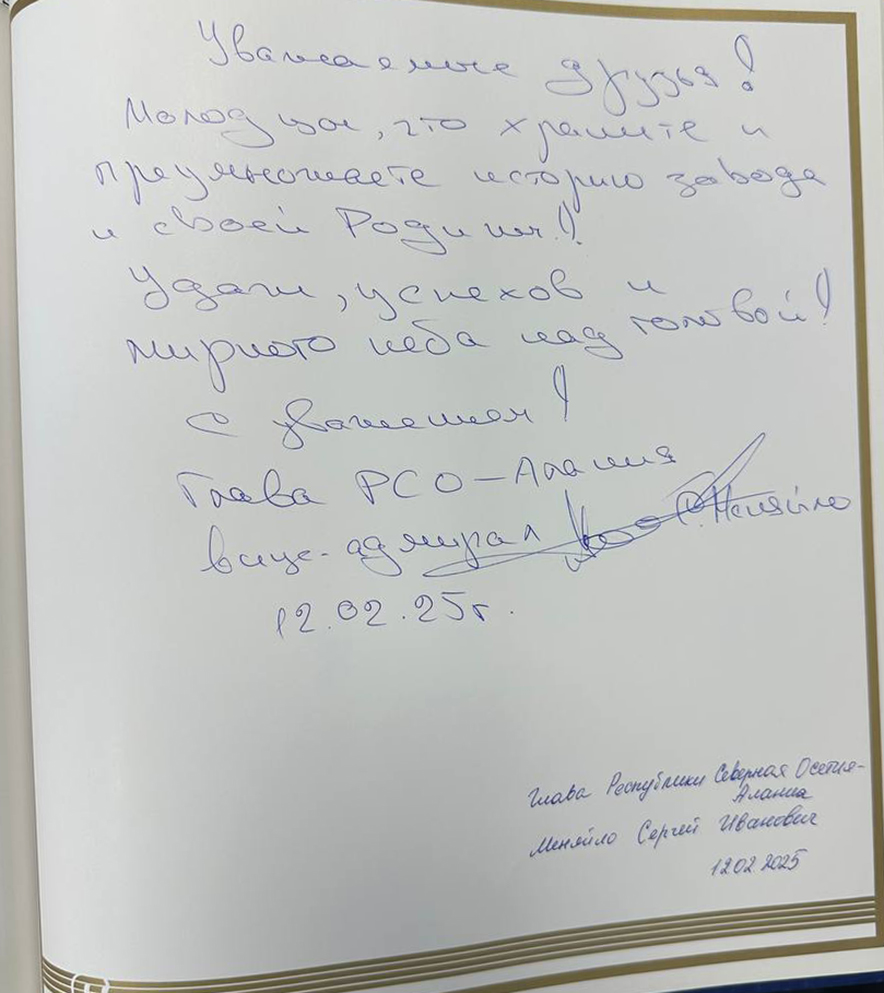 Уважаемые друзья!
Молодцы, что храните и
преумножаете историю завода
и своей Родины!
Удачи, успехов и
мирного неба над головой!
С уважением!
Глава РСО-Алания
вице-адмирал С. Меняйло
12.02.25г.
Глава Республики Северная Осетия-
Алания
Меняйло Сергей Иванович
12.02.2025